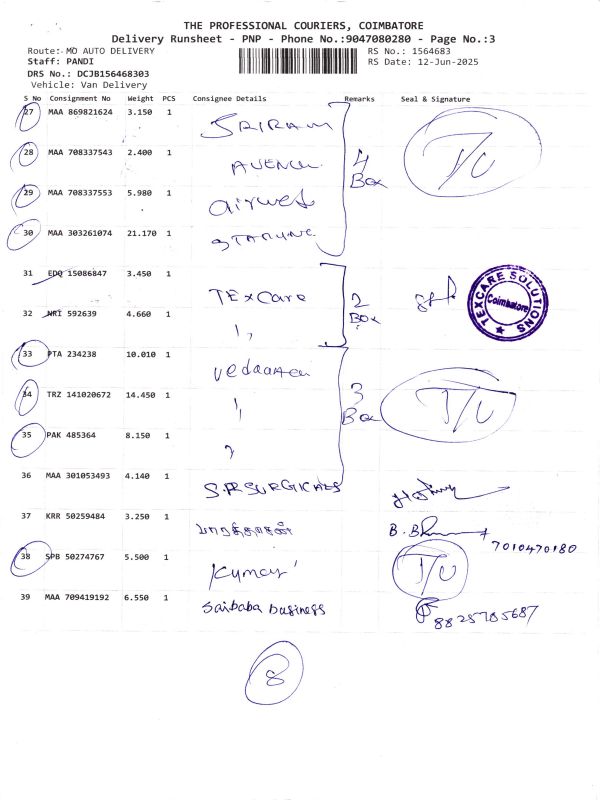 THE PROFESSIONAL COURIERS, COIMBATORE
Delivery Runsheet - PNP - Phone No.:9047080280 - Page No.:3
Route: MO AUTO DELIVERY RS No.: 1564683
Staff: PANDI RS Date: 12-Jun-2025
DRS No.: DCJB156468303
Vehicle: Van Delivery
S No Consignment No Weight PCS Consignee Details Remarks Seal & Signature
27 MAA 869821624 3.150 1 SRIRAM
28 MAA 708337543 2.400 1 AVENUE 4 Box T/U
29 MAA 708337553 5.980 1
30 MAA 303261074 21.170 1
31 EDQ 15086847 3.450 1 TExCare 2 Box TEXCARE SOLUTIONS Coimbatore
32 NRI 592639 4.660 1 "
33 PTA 234238 10.010 1
34 TRZ 141020672 14.450 1 " 3 Box T/U
35 PAK 485364 8.150 1 "
36 MAA 301053493 4.140 1 S.P.R SURGICALS
37 KRR 50259484 3.250 1 7010470180
38 SPB 50274767 5.500 1 Kumar T/U
39 MAA 709419192 6.550 1 Saibaba business 8825785687
8